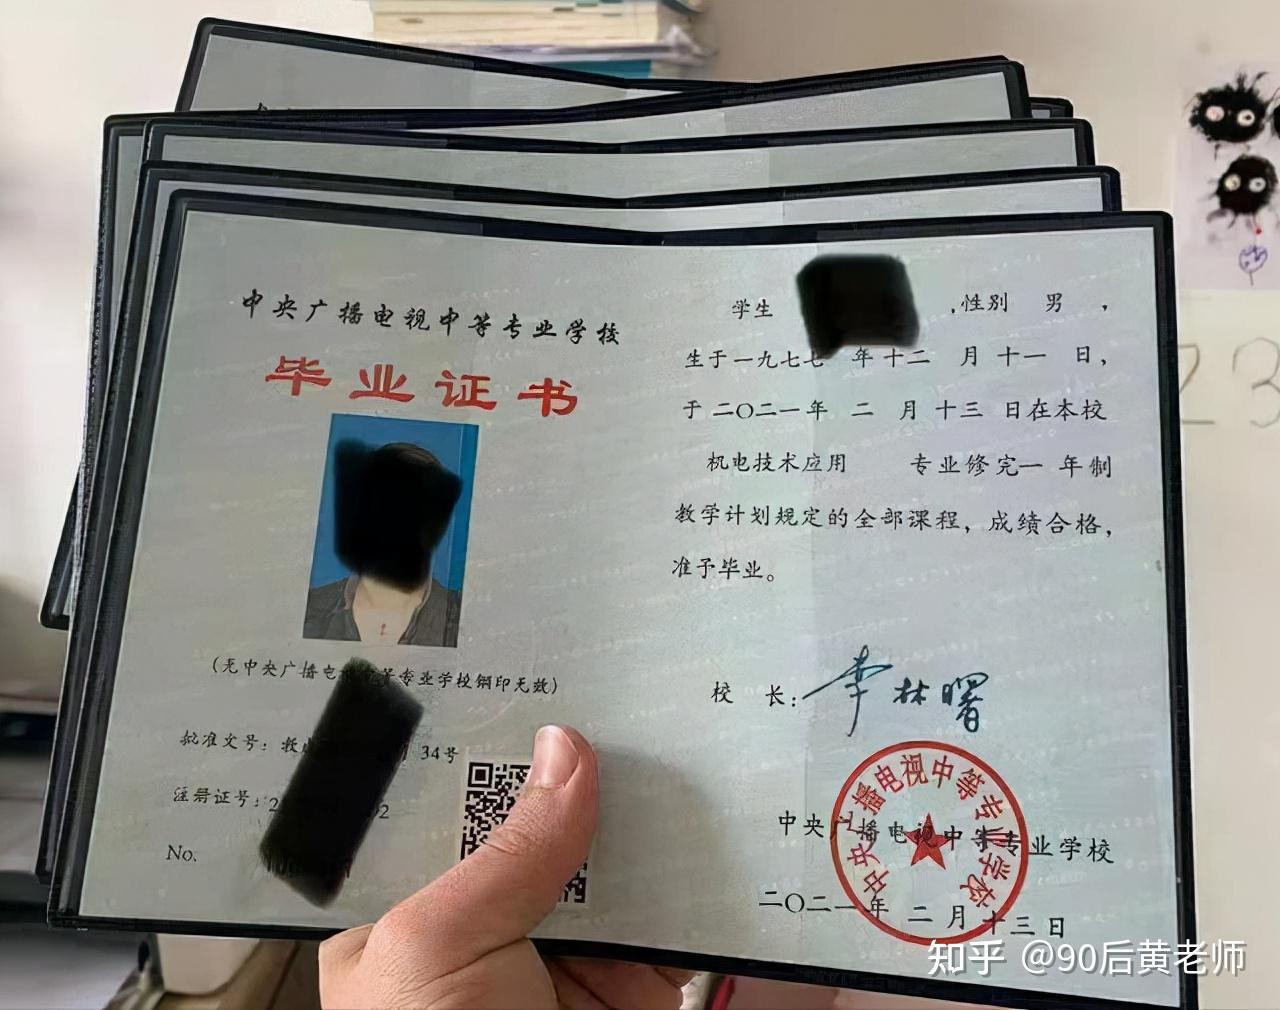 中央广播电视中等专业学校
毕业证书
(无中央广播电 等专业学校钢印无效)
批准文号:教 34号
注册证号:2 02
No.
学生 ,性别 男 ,
生于一九七七 年 十二 月 十一 日,
于 二〇二一 年 二 月 十三 日在本校
机电技术应用 专业修完一 年制
教学计划规定的全部课程,成绩合格,
准予毕业。
校 长: 李林曙
中央广播电视中等专业学校
中央广播电视中等专业学校
二〇二一年 二 月 十三 日
23
知乎 @90后黄老师